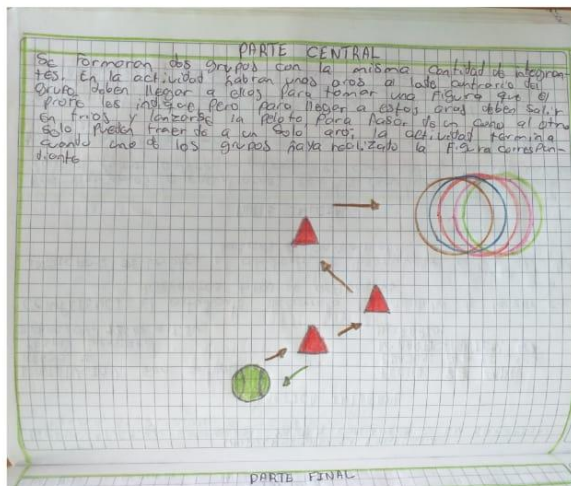 PARTE CENTRAL
Se formaran dos grupos con la misma cantidad de integran-
tes. En la actividad habran unos aros al lado contrario del
grupo deben llegar a ellos para formar una figura que el
profe les indique pero para llegar a estos aros deben salir
en trios y lanzarse la pelota para pasar de un cono al otro
solo pueden traer de a un solo aro; la actividad termina
cuando uno de los grupos haya realizado la figura correspon-
diente
PARTE FINAL